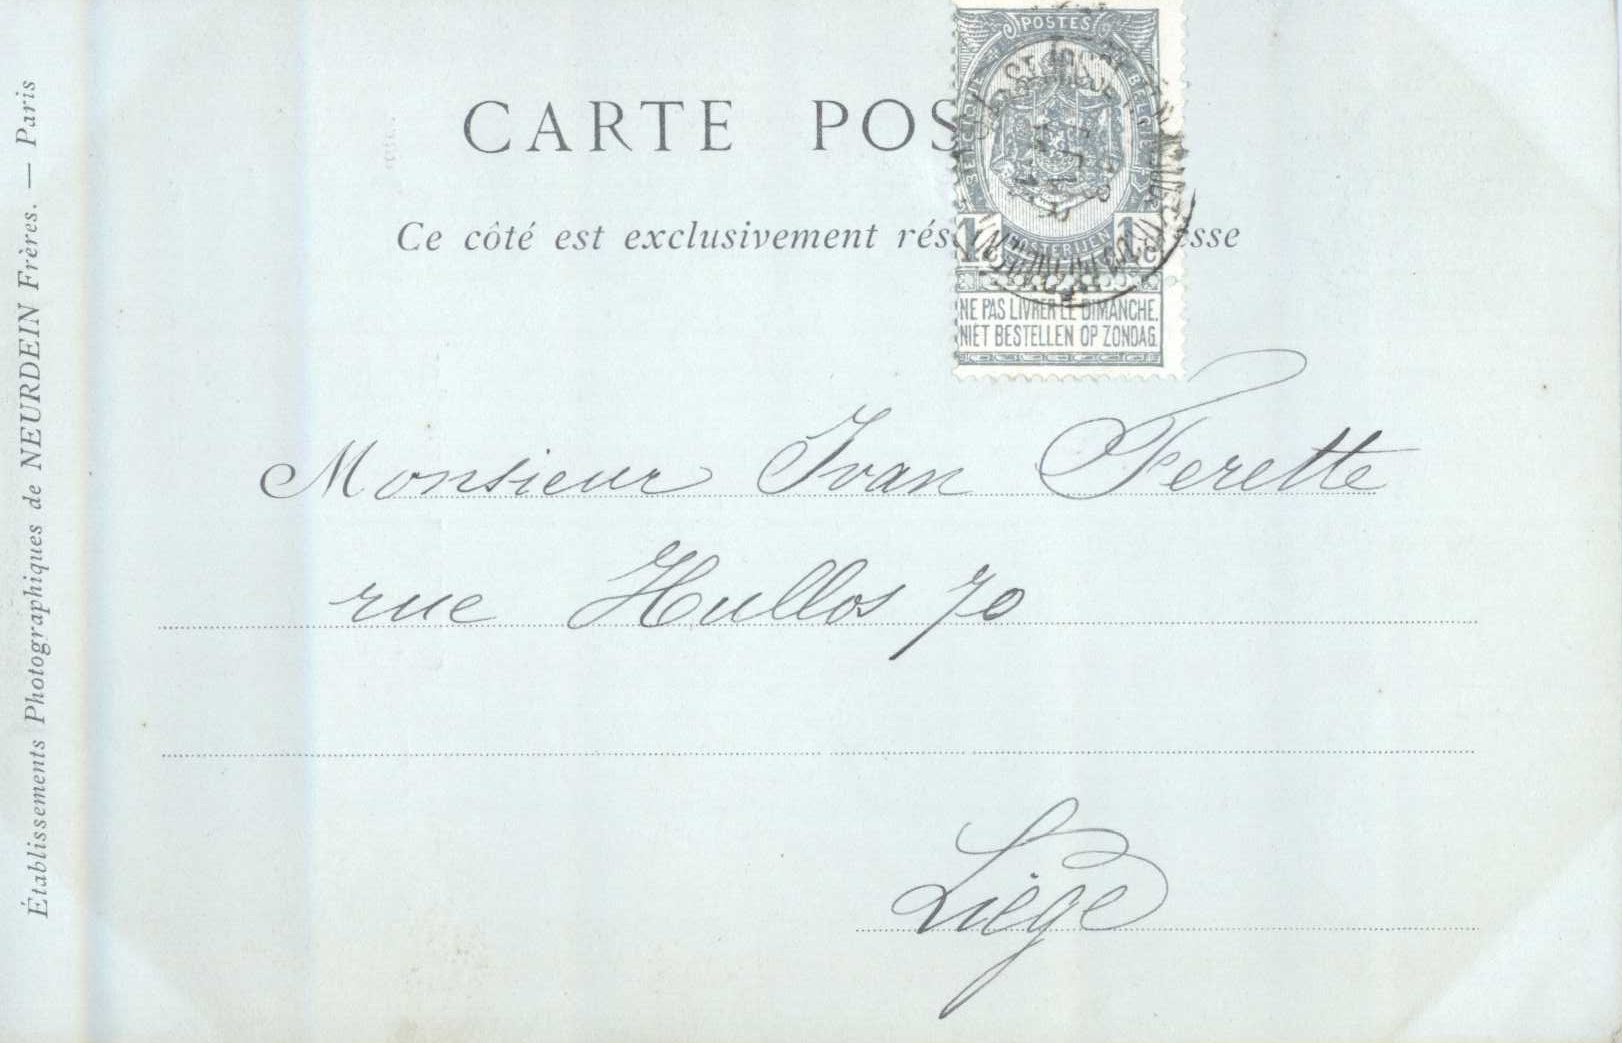 CARTE POS
Ce côté est exclusivement rés esse
POSTES
BELGIQUE BELGIE
POSTERIJEN
1 1c
NE PAS LIVRER LE DIMANCHE.
NIET BESTELLEN OP ZONDAG.
Monsieur Ivan Ferette
rue Hullos 70
Liège
Établissements Photographiques de NEURDEIN Frères. — Paris